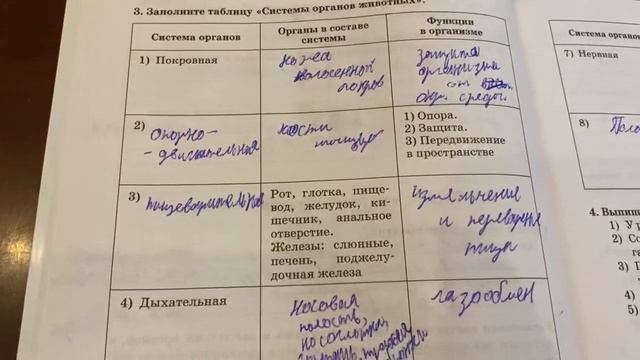 3. Заполните таблицу «Системы органов животных».
Система органов
Органы в составе
системы
Функции
в организме
1) Покровная
кожа
волосенной
покров
защита
организма
от
окр. среды
2) опорно-
-двигательная
кости
мышцы
1) Опора.
2) Защита.
3) Передвижение
в пространстве
3) пищеварительная
Рот, глотка, пище-
вод, желудок, ки-
шечник, анальное
отверстие.
Железы: слюнные,
печень, поджелу-
дочная железа
измельчения
и
пищи
4) Дыхательная
носовая
полость,
носоглотка,
газообмен
Система органов
7) Нервная
8)
4. Выпиши
1) У р
2) Со
3) П
4)
5)